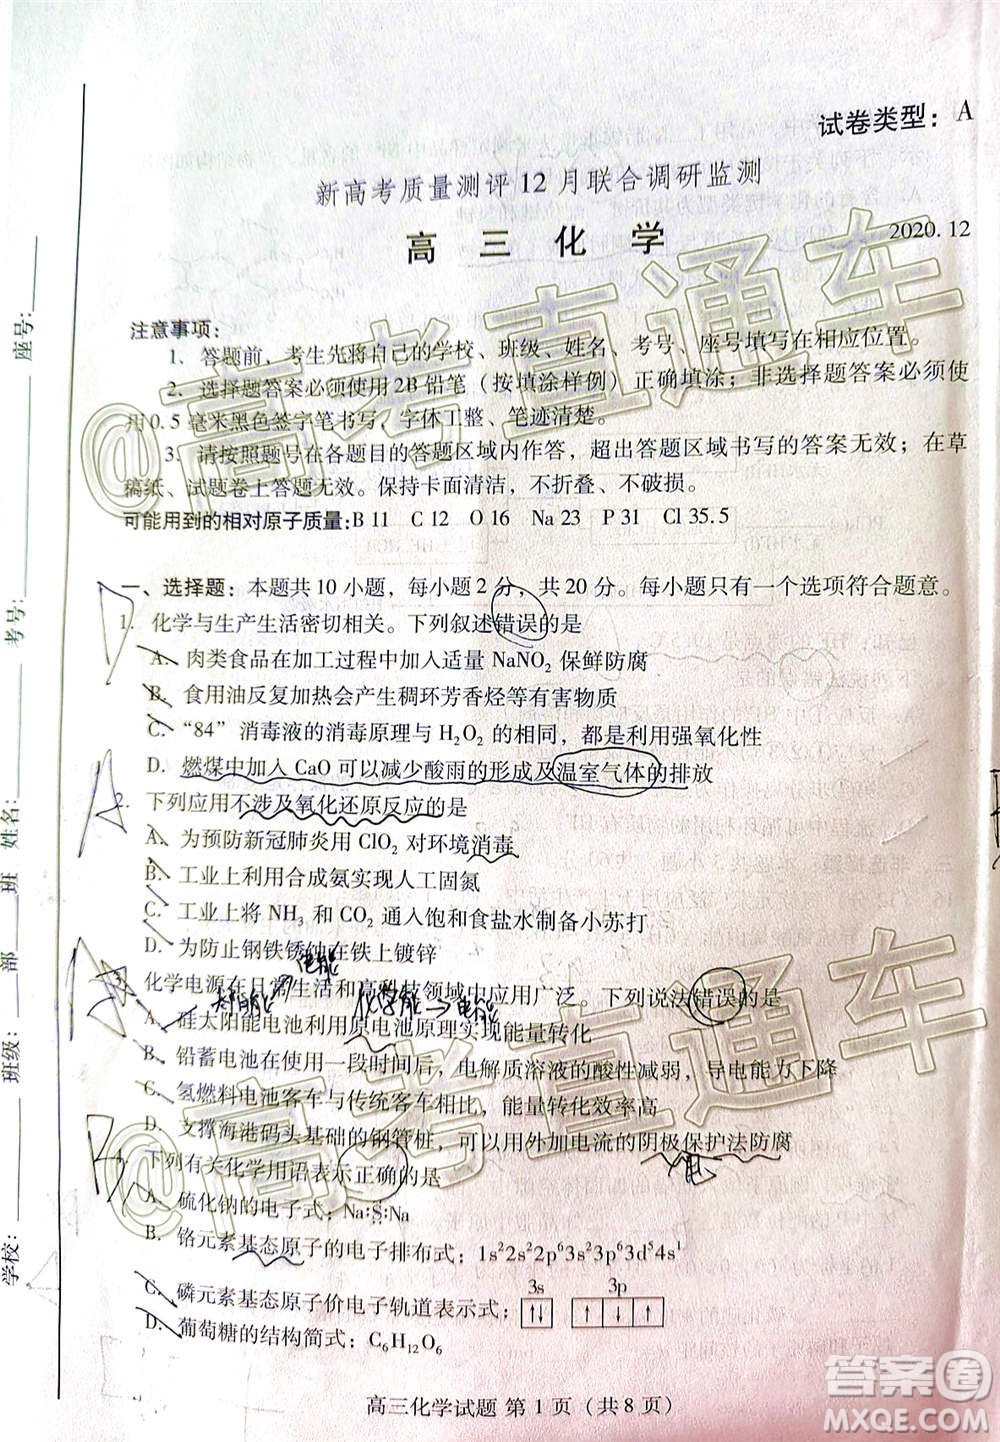 试卷类型：A
新高考质量测评12月联合调研监测
高三化学
2020.12
注意事项：
1. 答题前，考生先将自己的学校、班级、姓名、考号、座号填写在相应位置。
2. 选择题答案必须使用2B铅笔（按填涂样例）正确填涂；非选择题答案必须使
用0.5毫米黑色签字笔书写，字体工整、笔迹清楚。
3. 请按照题号在各题目的答题区域内作答，超出答题区域书写的答案无效；在草
稿纸、试题卷上答题无效。保持卡面清洁，不折叠、不破损。
可能用到的相对原子质量：B 11 C 12 O 16 Na 23 P 31 Cl 35.5
一、选择题：本题共10小题，每小题2分，共20分。每小题只有一个选项符合题意。
1. 化学与生产生活密切相关。下列叙述错误的是
A. 肉类食品在加工过程中加入适量NaNO₂保鲜防腐
B. 食用油反复加热会产生稠环芳香烃等有害物质
C. “84”消毒液的消毒原理与H₂O₂的相同，都是利用强氧化性
D. 燃煤中加入CaO可以减少酸雨的形成及温室气体的排放
2. 下列应用不涉及氧化还原反应的是
A. 为预防新冠肺炎用ClO₂对环境消毒
B. 工业上利用合成氨实现人工固氮
C. 工业上将NH₃和CO₂通入饱和食盐水制备小苏打
D. 为防止钢铁锈蚀在铁上镀锌
3. 化学电源在日常生活和高科技领域中应用广泛。下列说法错误的是
太阳能 电能 化学能→电能
A. 硅太阳能电池利用原电池原理实现能量转化
B. 铅蓄电池在使用一段时间后，电解质溶液的酸性减弱，导电能力下降
C. 氢燃料电池客车与传统客车相比，能量转化效率高
D. 支撑海港码头基础的钢管桩，可以用外加电流的阴极保护法防腐
下列有关化学用语表示正确的是
A. 硫化钠的电子式：Na:S:Na
B. 铬元素基态原子的电子排布式：1s²2s²2p⁶3s²3p⁶3d⁵4s¹
3s 3p
C. 磷元素基态原子价电子轨道表示式：↑↓ ↑↓ ↑
D. 葡萄糖的结构简式：C₆H₁₂O₆
高三化学试题 第1页（共8页）
学校： 班级： 部 班 姓名： 考号： 座号：
@高考直通车
@高考直通车
答案圈
MXQE.COM